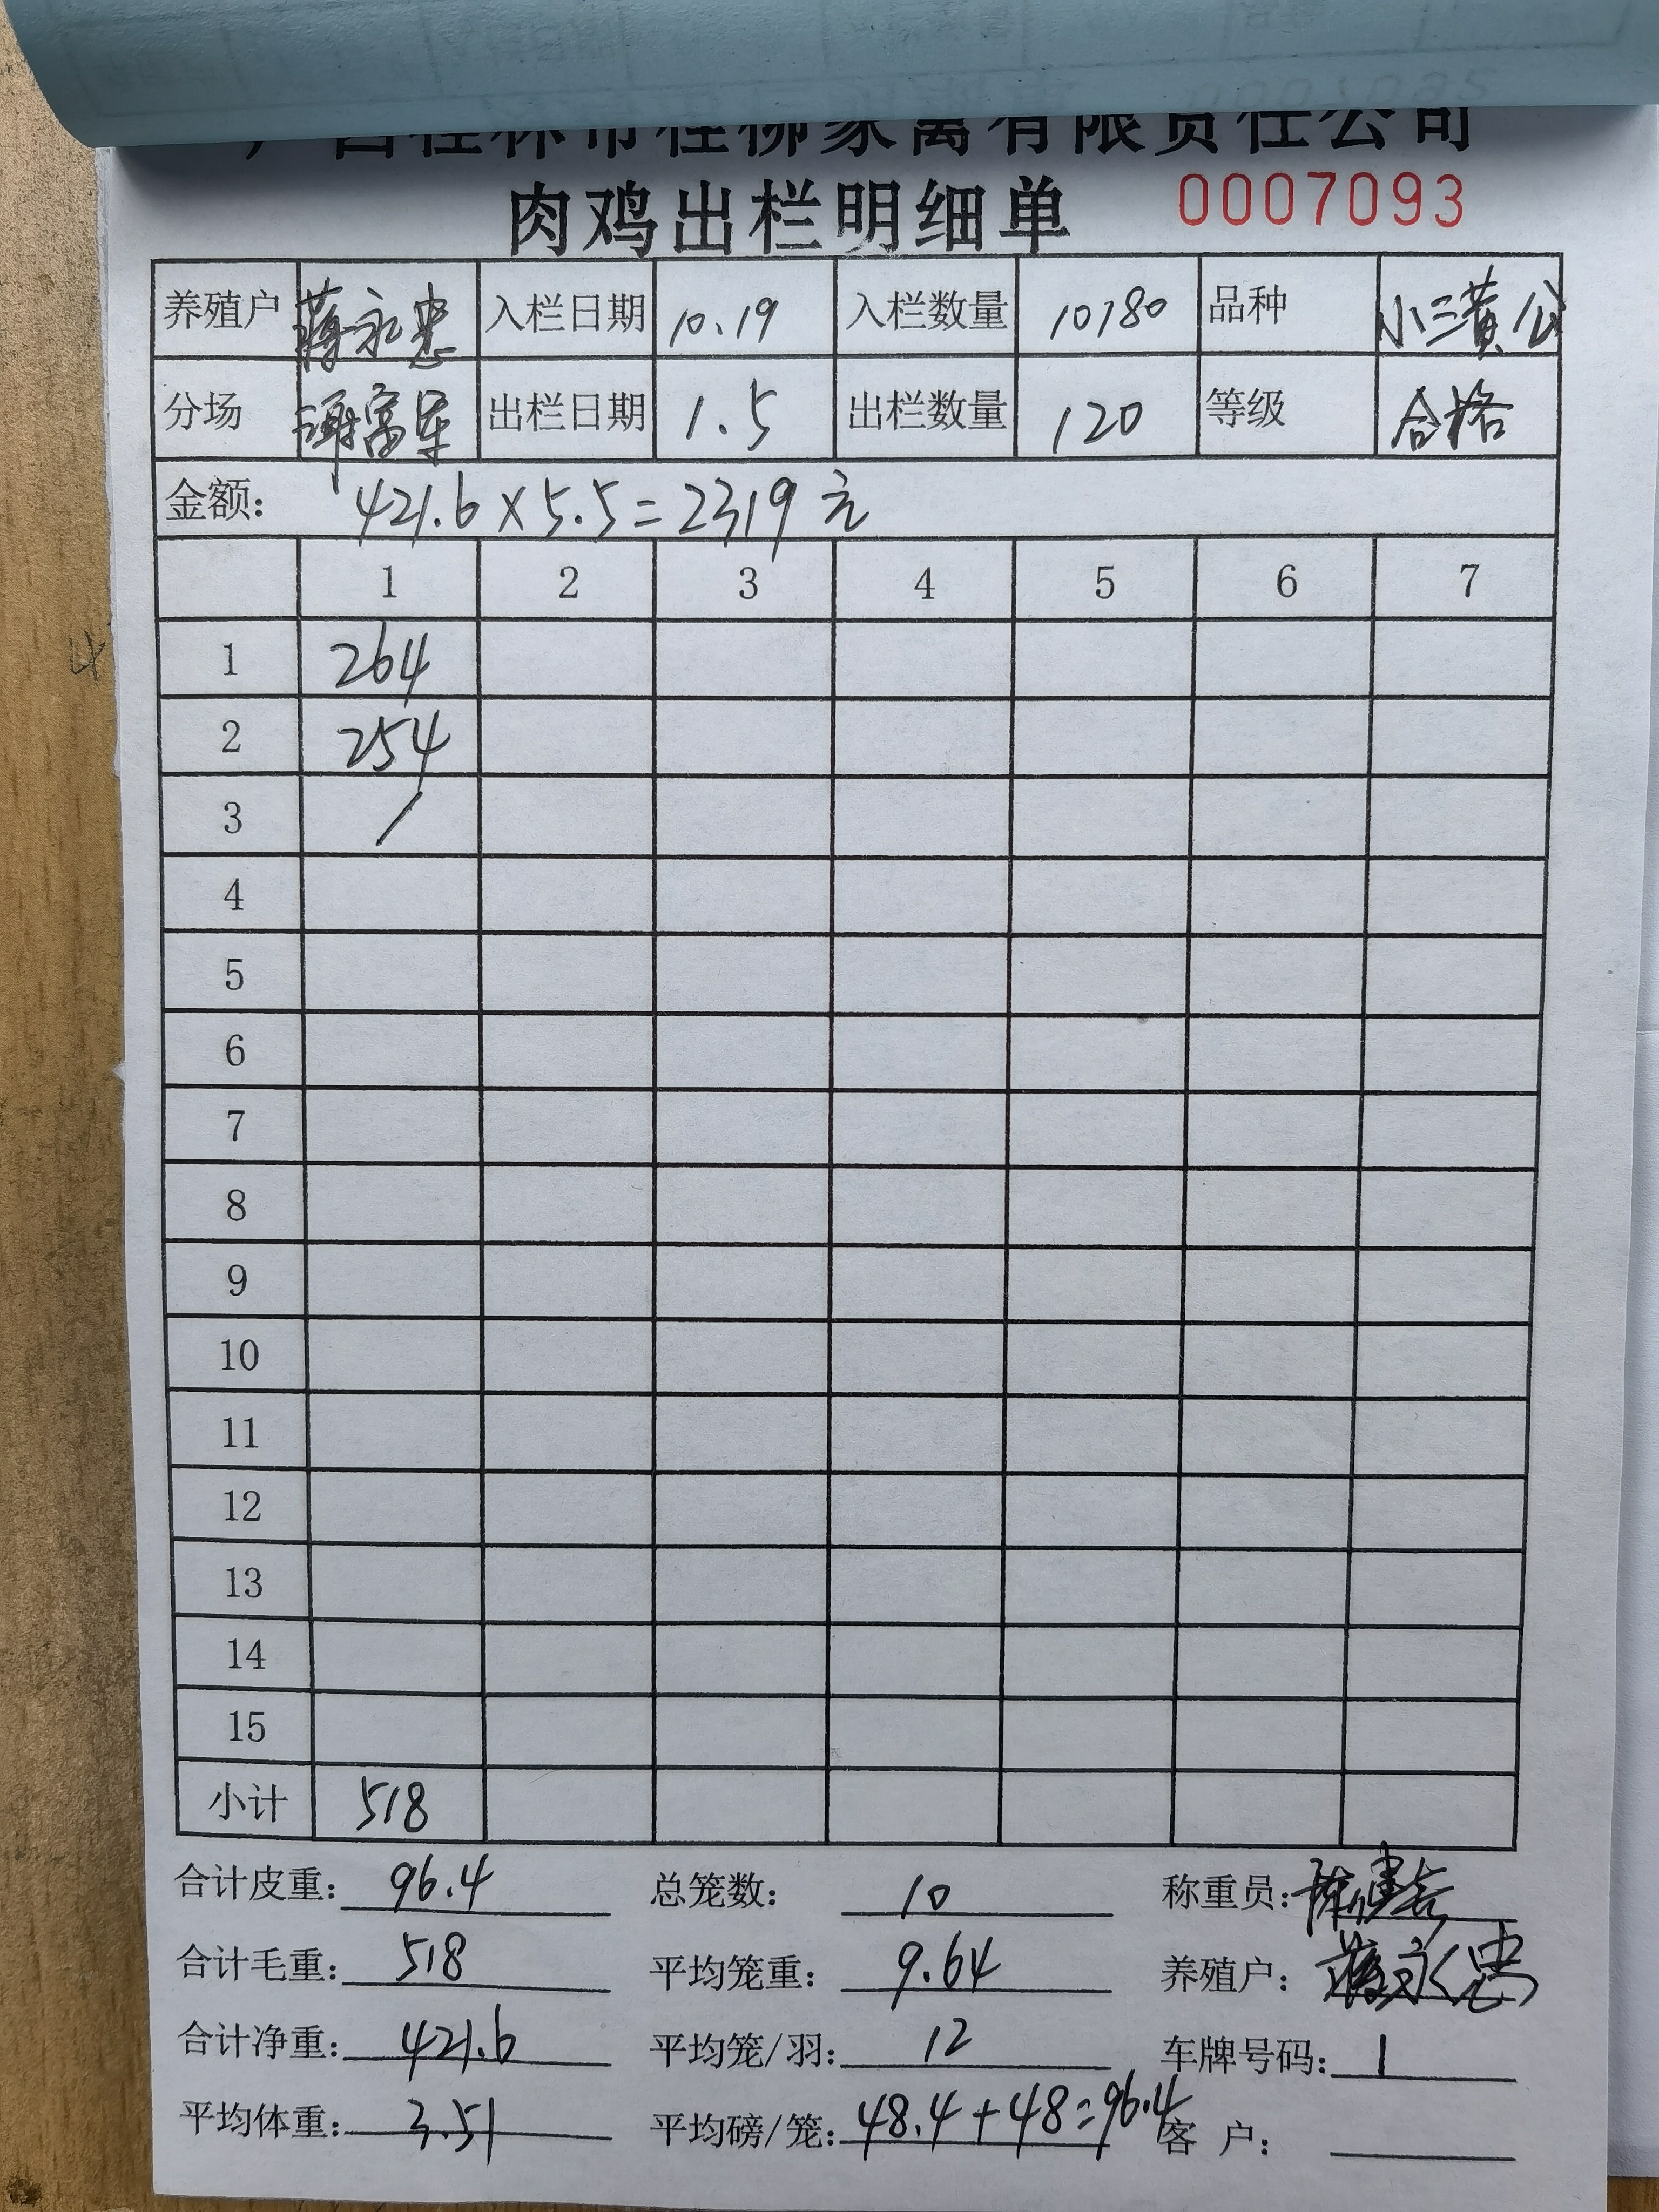 广西桂林市桂柳家禽有限责任公司
肉鸡出栏明细单 0007093
养殖户 蒋永忠 入栏日期 10.19 入栏数量 10180 品种 小三黄公
分场 谢富军 出栏日期 1.5 出栏数量 120 等级 合格
金额: 421.6×5.5=2319元
1 2 3 4 5 6 7
1 264
2 254
3 /
4
5
6
7
8
9
10
11
12
13
14
15
小计 518
合计皮重: 96.4 总笼数: 10 称重员:
合计毛重: 518 平均笼重: 9.64 养殖户: 蒋永忠
合计净重: 421.6 平均笼/羽: 12 车牌号码: 1
平均体重: 3.51 平均磅/笼: 48.4+48=96.4 客户:
4